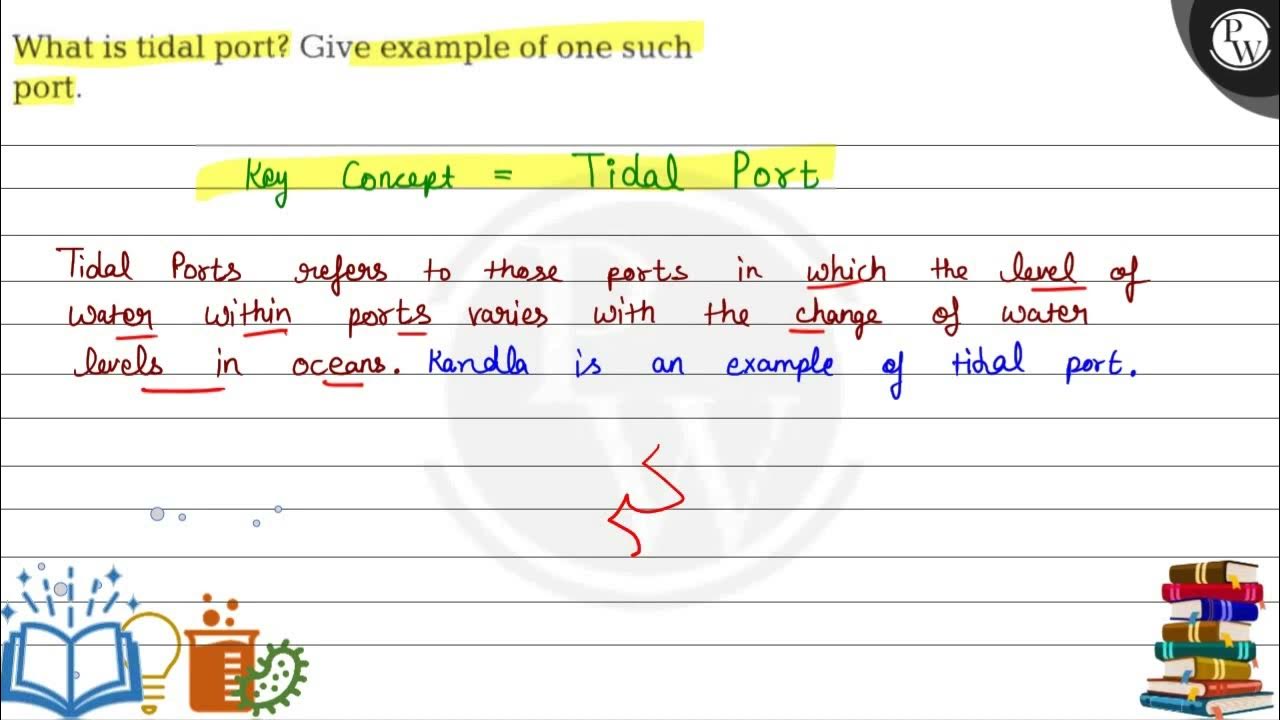 What is tidal port? Give example of one such
port.
Key Concept = Tidal Port
Tidal Ports refers to those ports in which the level of
water within ports varies with the change of water
levels in oceans. Kandla is an example of tidal port.
PW
PW